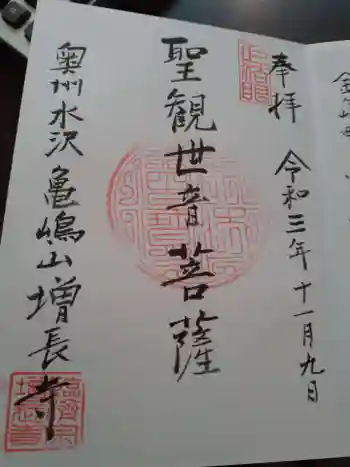 奉拝 令和三年十一月九日
聖観世音菩薩
奥州水沢 亀嶋山 増長寺